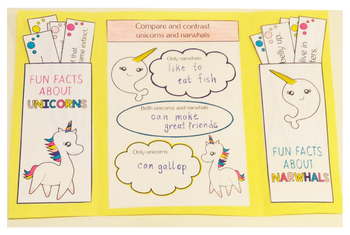 that
game extinct.
FUN FACTS
ABOUT
UNICORNS
Compare and contrast
unicorns and narwhals
Only narwhals
like to
eat fish
Both unicorns and narwhals
can make
great friends
Only unicorns
can gallop
elly up.
live in
ters.
FUN FACTS
ABOUT
NARWHALS